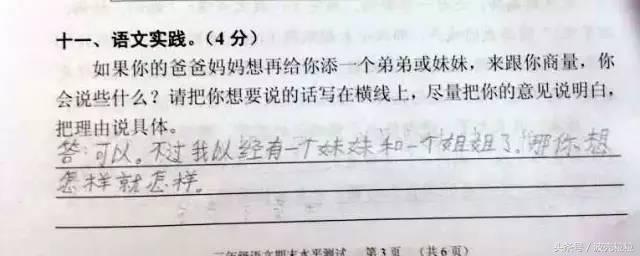 十一、语文实践。（4分）
如果你的爸爸妈妈想再给你添一个弟弟或妹妹，来跟你商量，你
会说些什么？请把你想要说的话写在横线上，尽量把你的意见说明白，
把理由说具体。
答：可以。不过我以经有一个妹妹和一个姐姐了，哪你想
怎样就怎样。
年级语文期末水平测试 第3页 （共6页）
头条号／波克粒粒